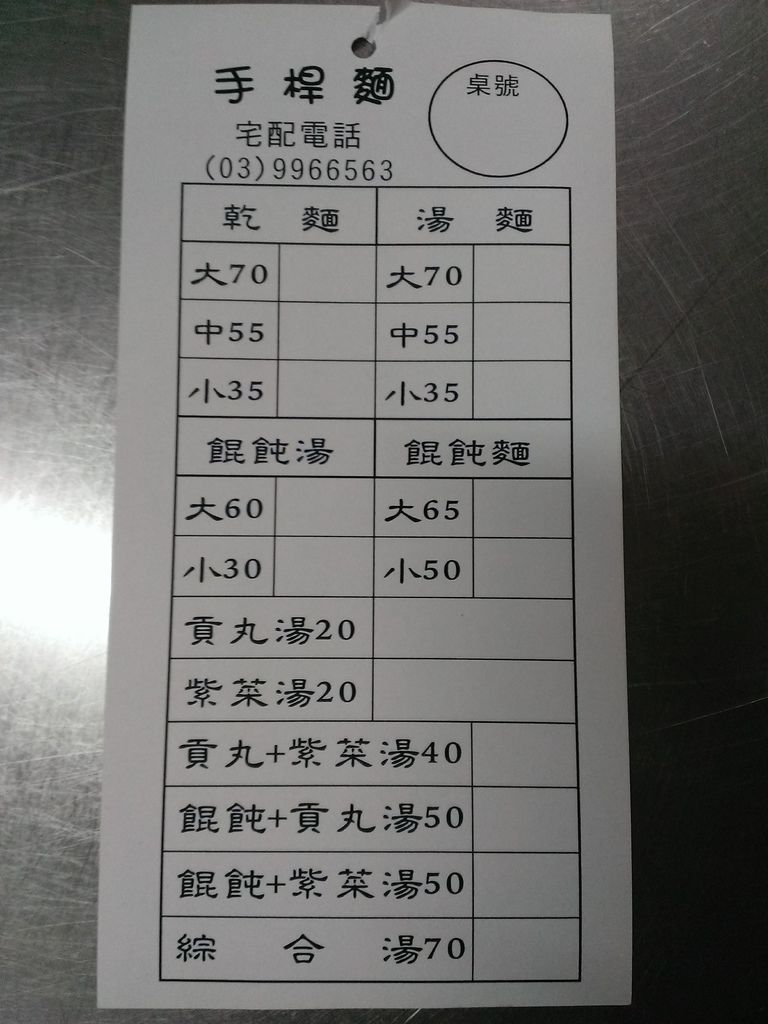 手桿麵
桌號
宅配電話
(03)9966563
乾 麵 湯 麵
大70 大70
中55 中55
小35 小35
餛飩湯 餛飩麵
大60 大65
小30 小50
貢丸湯20
紫菜湯20
貢丸+紫菜湯40
餛飩+貢丸湯50
餛飩+紫菜湯50
綜 合 湯70